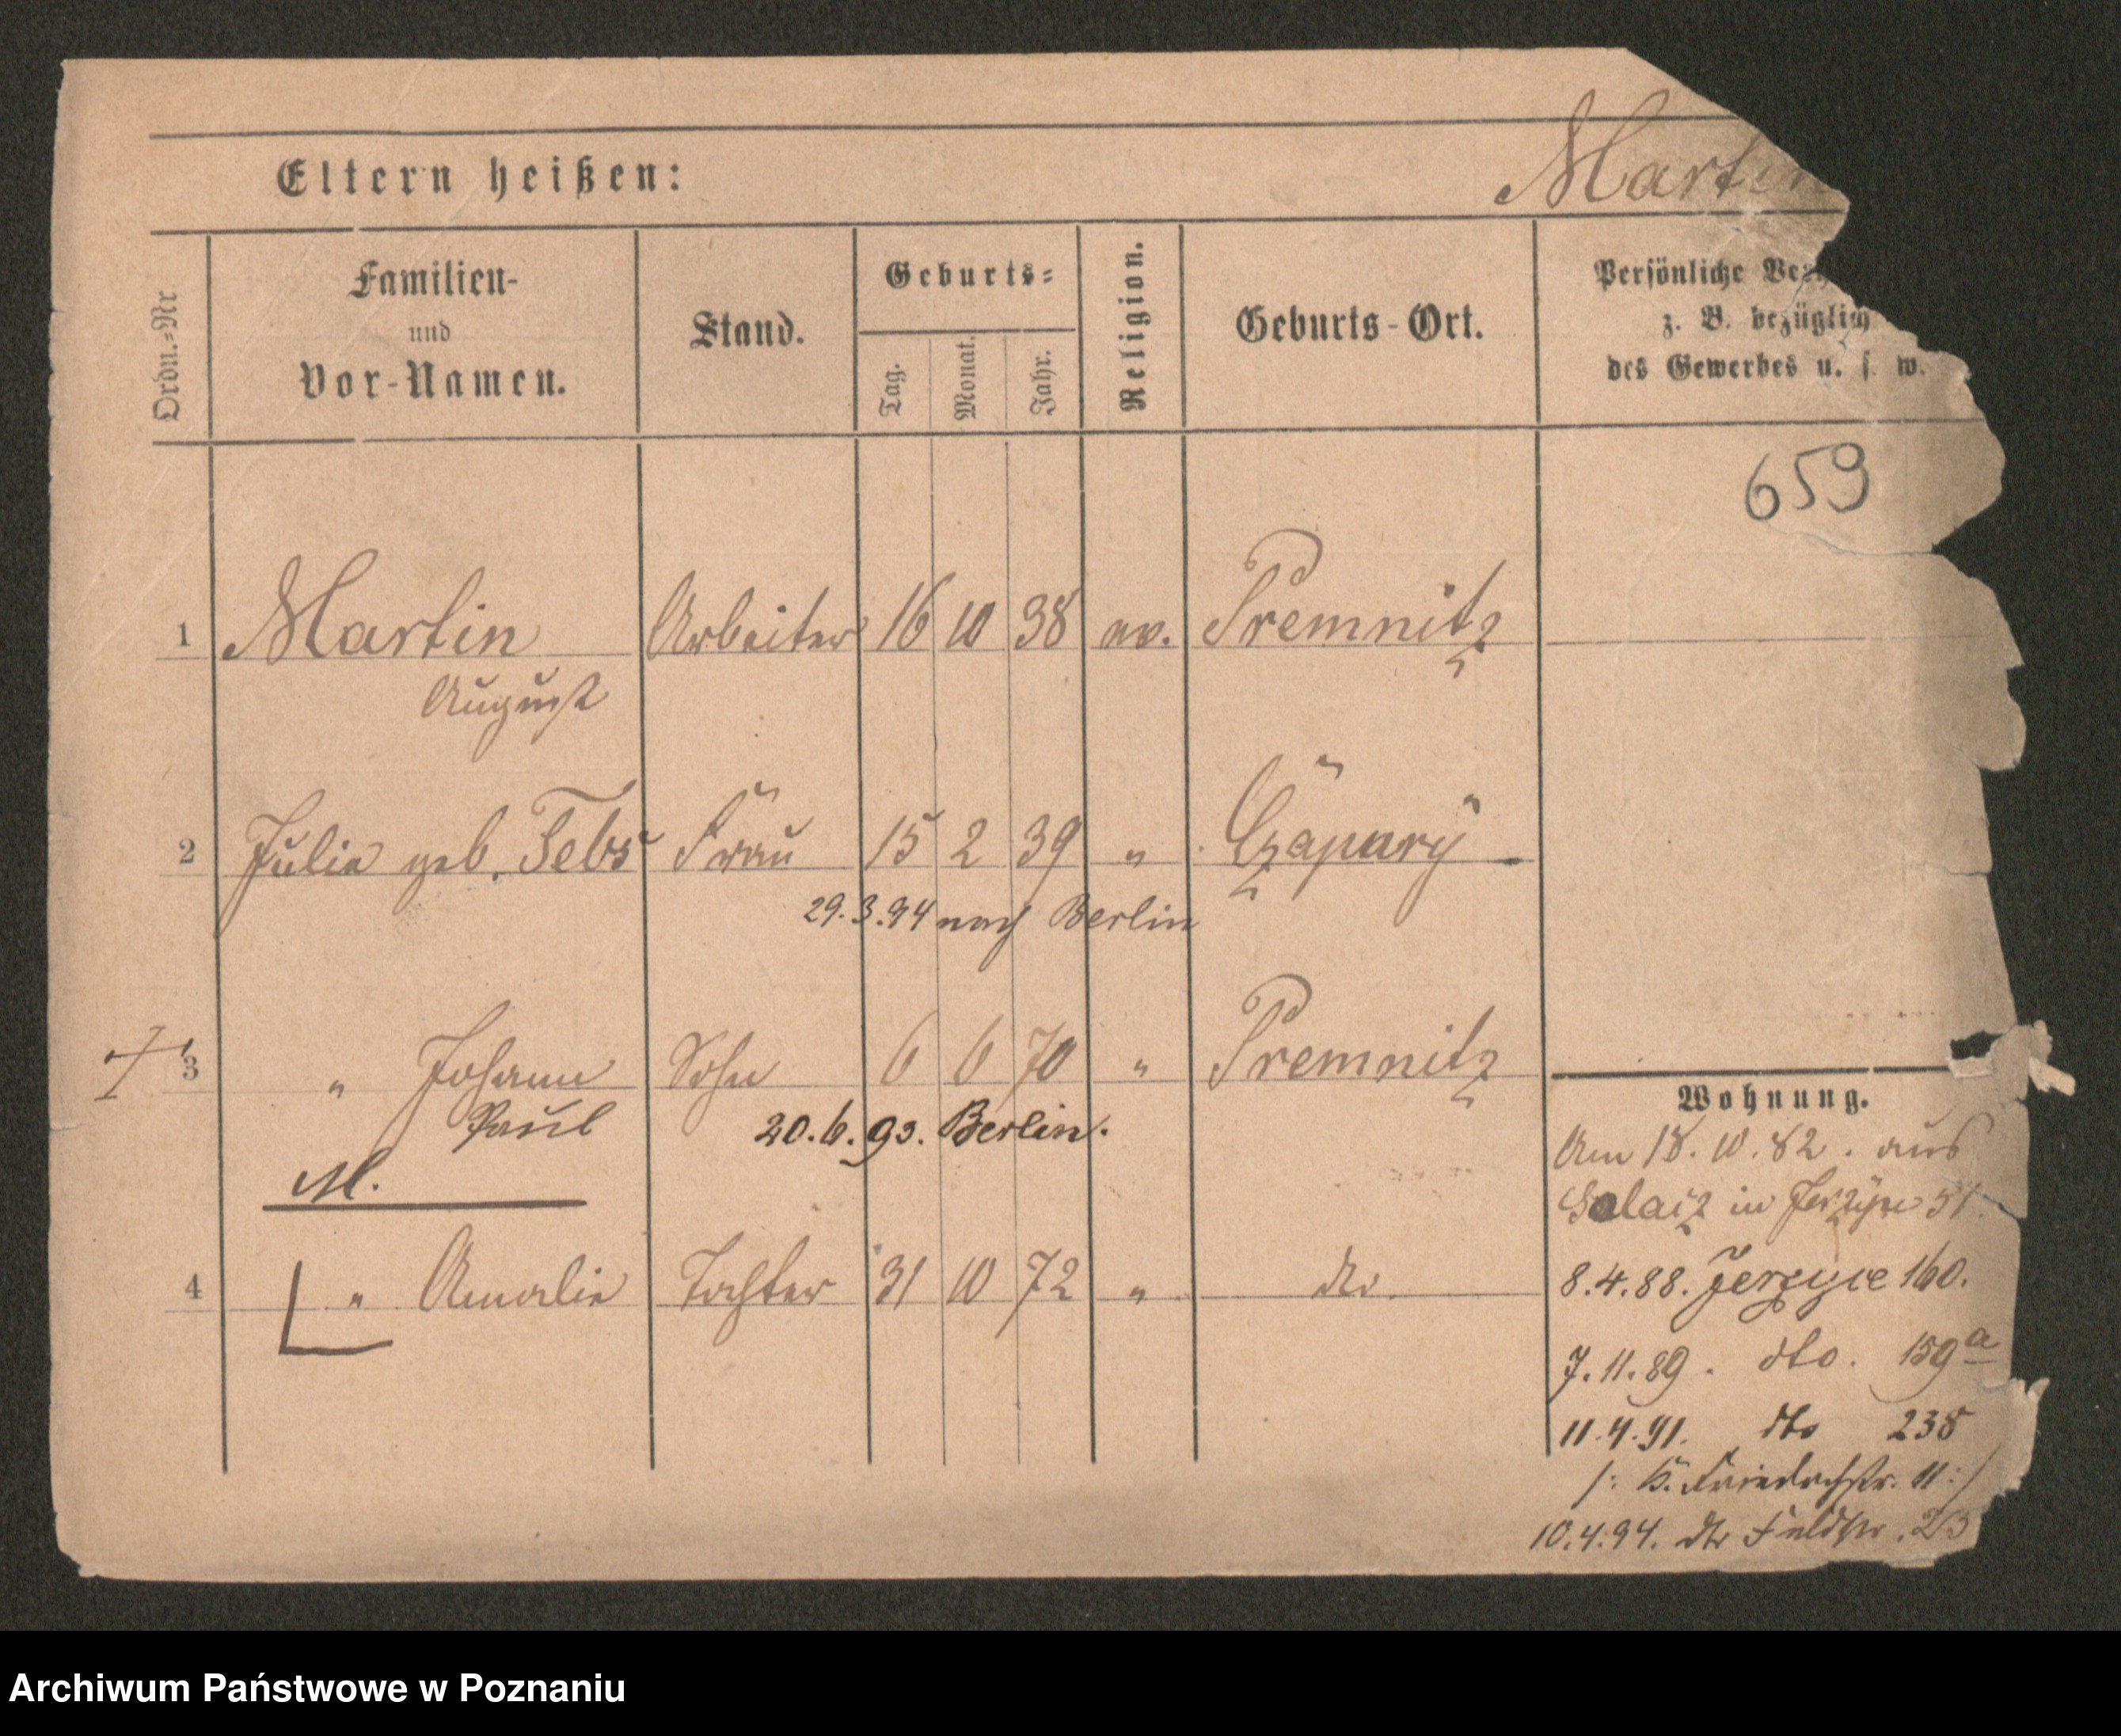 Martin
Eltern heißen:
Ordn.=Nr
Familien-
und
Vor-Namen.
Stand.
Geburts=
Tag.
Monat.
Jahr.
Religion.
Geburts-Ort.
Persönliche
z. B. bezüglich
des Gewerbes u. s. w.
659
1 Martin Arbeiter 16 10 38 ev. Premnitz
August
2 Julie geb. Tebs Frau 15 2 39 " Czapury
29.3.94 nach Berlin
3 " Johann Sohn 6 6 70 " Premnitz
Paul 20.6.93. Berlin.
M.
4 " Amalie Tochter 31 10 72 " do.
Wohnung.
Am 18.10.82. aus
Solacz in Jerzyce 51.
8.4.88. Jerzyce 160.
7.11.89. dto. 159a
11.4.91. dto 238
/: K. Friedrichstr. 11 :/
10.4.94. dto Feldstr. 23
Archiwum Państwowe w Poznaniu